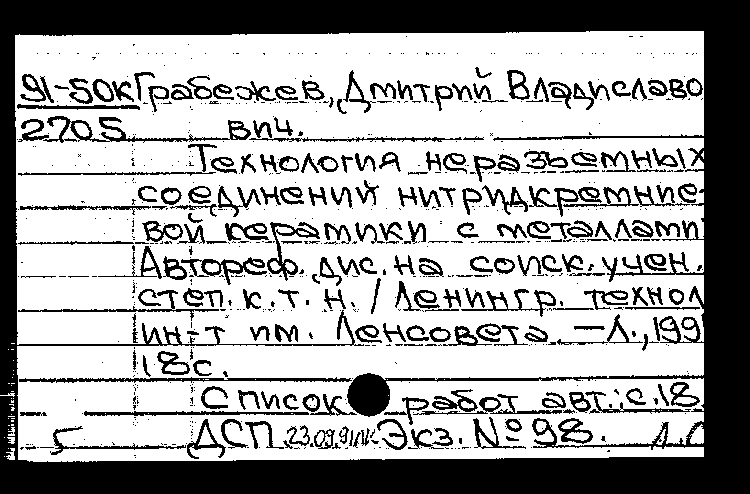 91-50к Грабежев, Дмитрий Владиславо
2705 вич.
Технология неразъемных
соединений нитридкремние-
вой керамики с металлами
Автореф. дис. на соиск. учен.
степ. к.т.н. / Ленингр. технол
ин-т им. Ленсовета. — Л., 199
18с.
Список работ авт.: с.18.
5 ДСП 23.09.91 Экз. № 98.